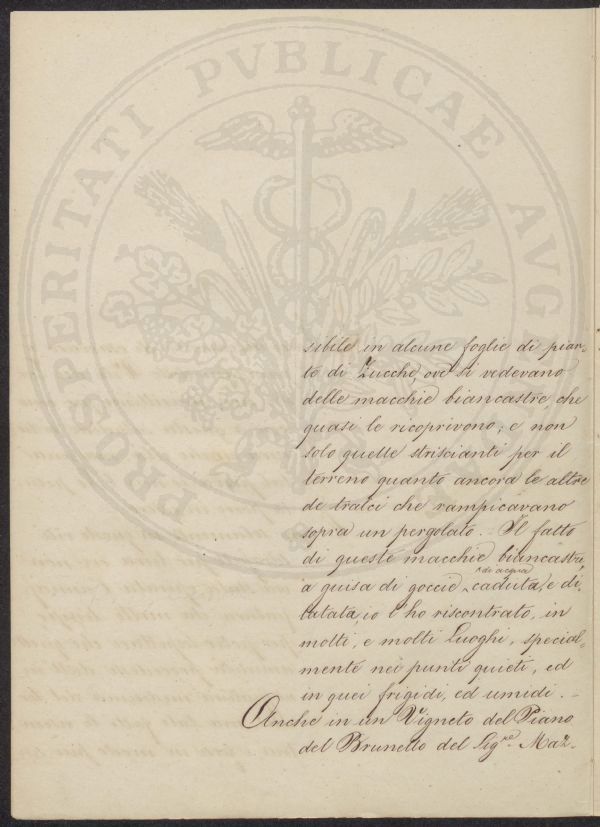 PROSPERITATI PVBLICAE AVGE
sibile in alcune foglie di pian-
te di Zucche, ove si vedevano
delle macchie biancastre, che
quasi le ricoprivono; e non
solo quelle striscianti per il
terreno quanto ancora le altre
de tralci che rampicavano
sopra un pergolato. Il fatto
di queste macchie biancastre,
di acqua
a guisa di goccie caduta, e di-
latata, io l'ho riscontrato, in
molti, e molti Luoghi, special-
mente nei punti quieti, ed
in quei frigidi, ed umidi. -
Anche in un Vigneto del Piano
del Brunetto del Sig.re Maz-